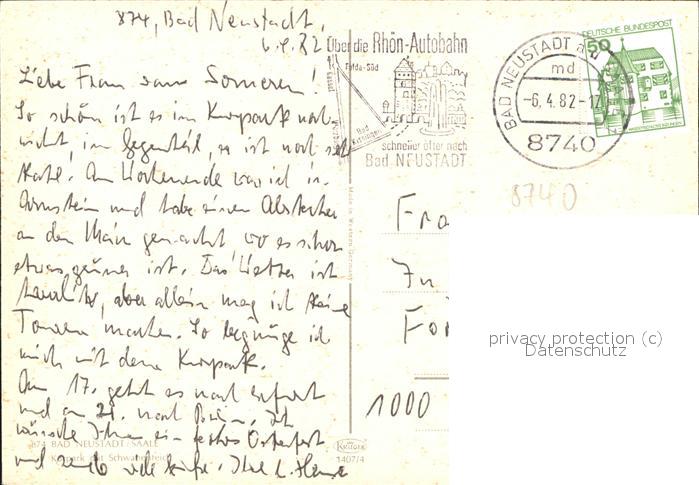 874, Bad Neustadt,
6.4.82
Liebe Frau van Someren!
So schön ist es im Kurpark noch
nicht, im Gegenteil, es ist noch sehr
kahl. Am Wochenende war ich in
Arnstein und habe einen Abstecher
an den Main gemacht wo es schon
etwas grüner ist. Das Wetter ist
herrlich, aber allein mag ich keine
Touren machen. So begnüge ich
mich mit dem Kurpark.
Am 17. geht es nach Erfurt
und am 21. nach Berlin. Ich
wünsche Ihnen ein frohes Osterfest
und viele Grüße. Ihre
874 BAD NEUSTADT/SAALE
Kurpark mit Schwanenteich
Über die Rhön-Autobahn
Fulda-Süd
Bad Kissingen
schneller öfter nach
Bad NEUSTADT
BAD NEUSTADT a d
md
-6.4.82-17
8740
DEUTSCHE BUNDESPOST
50
8740
Made in Western Germany
KRÜGER
1407/4
Fra
In
För
1000
privacy protection (c)
Datenschutz